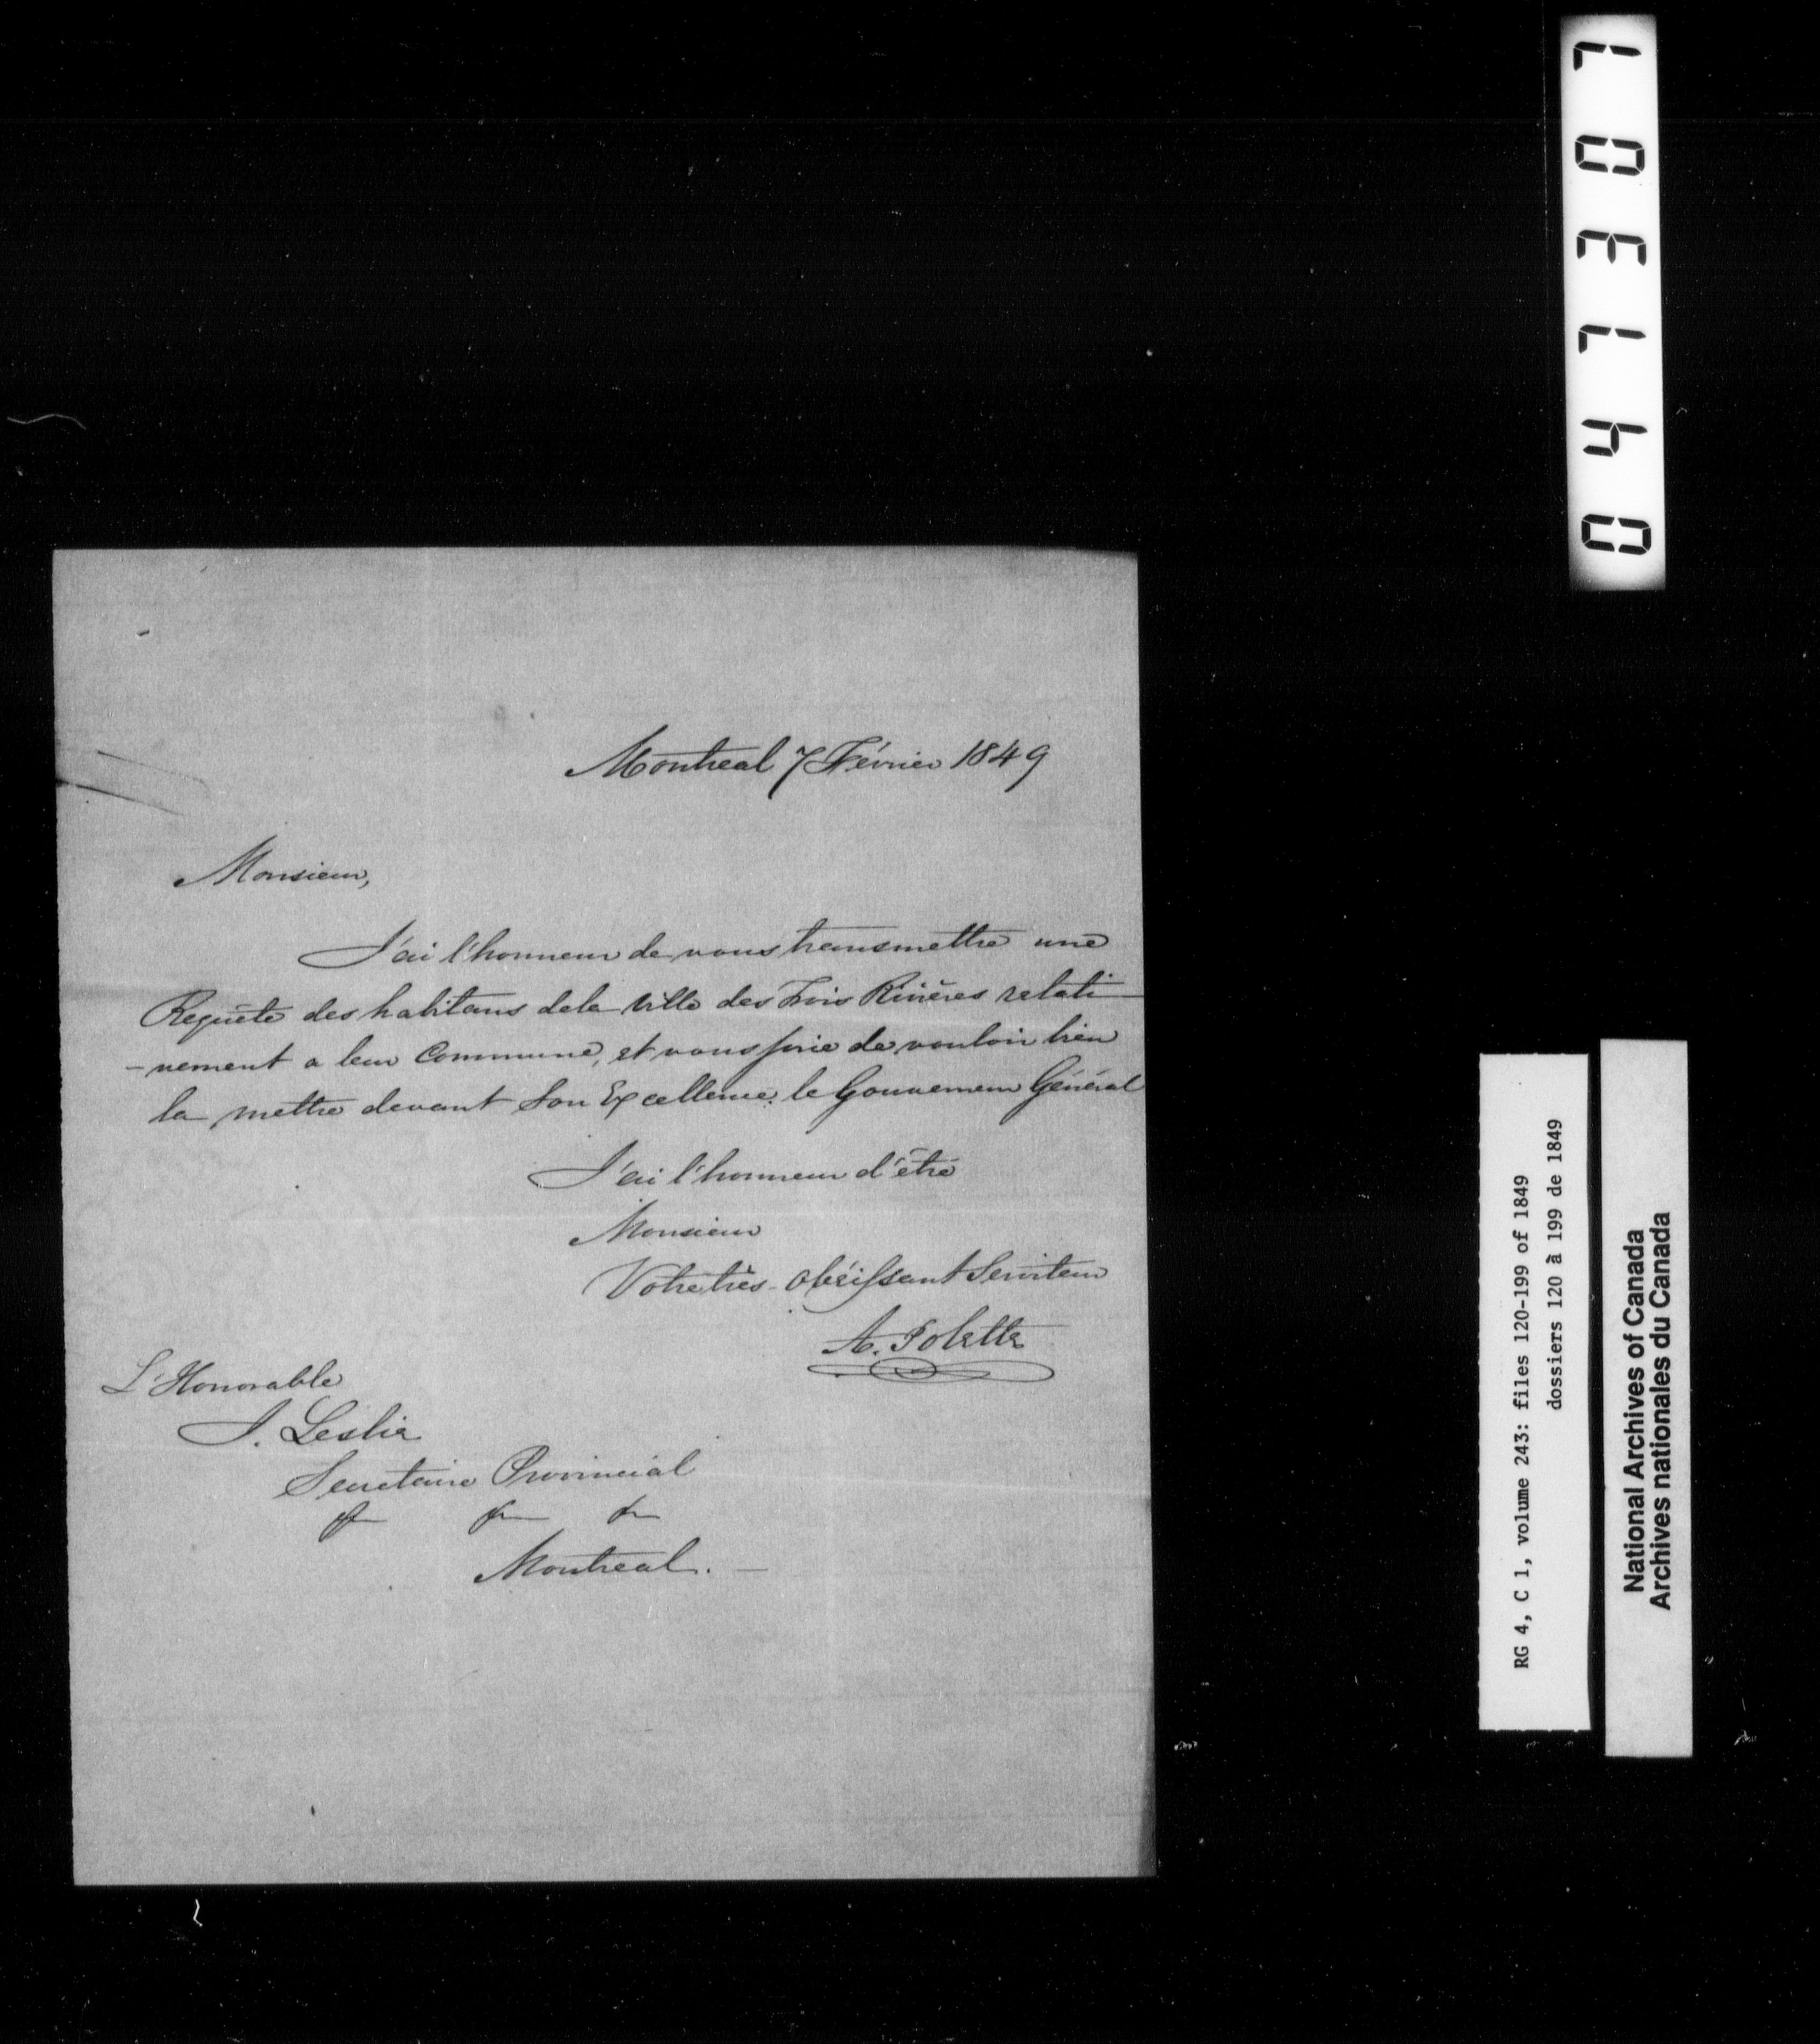 Montreal 7 Février 1849
Monsieur,
J'ai l'honneur de vous transmettre une
Requête des habitans dela Ville des Trois Rivières relati
-vement a leur Commune, et vous prie de vouloir bien
la mettre devant Son Excellence le Gouverneur Général
J'ai l'honneur d'être
Monsieur
Votre très-obéissant Serviteur
A. Polette
L'Honorable
J. Leslie
Secretaire Provincial
&c &c &c
Montreal.
041307
RG 4, C 1, volume 243: files 120-199 of 1849
dossiers 120 à 199 de 1849
National Archives of Canada
Archives nationales du Canada